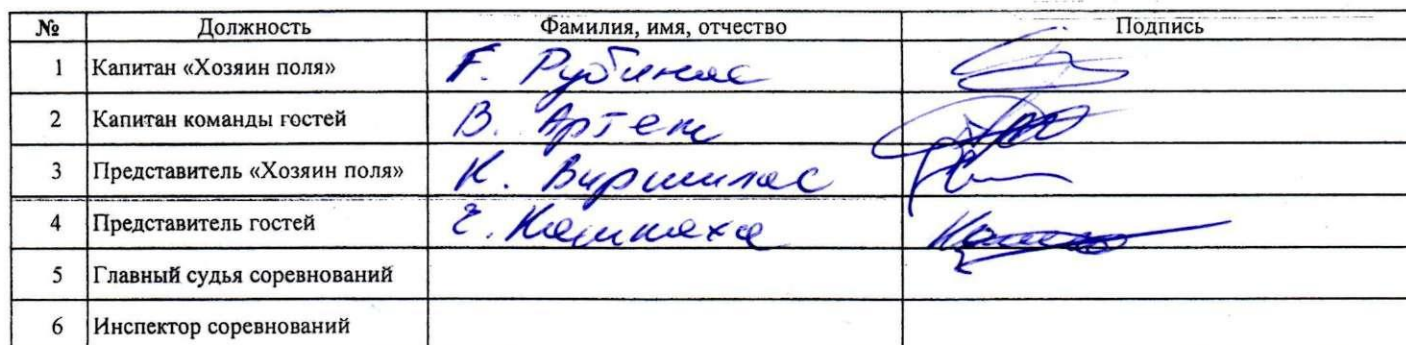 № Должность Фамилия, имя, отчество Подпись
1 Капитан «Хозяин поля» F. Рубинас
2 Капитан команды гостей В. Артем
3 Представитель «Хозяин поля» К. Виршилас
4 Представитель гостей
5 Главный судья соревнований
6 Инспектор соревнований